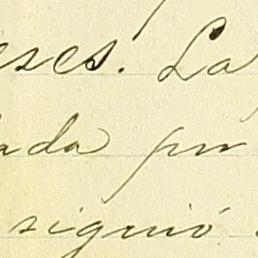 eses. La
ada por
siguió